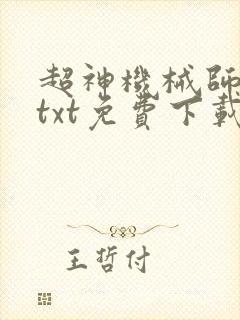 超神機械師
txt免費下載
王哲付